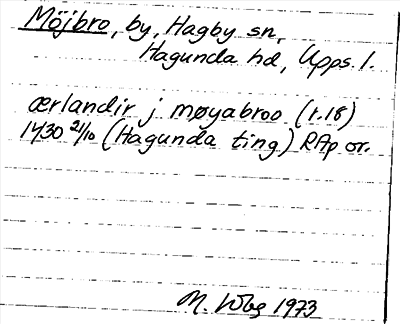 Möjbro, by, Hagby sn,
Hagunda hd, Upps. l.
ærlandir j møyabroo (r.18)
1430 21/10 (Hagunda ting) RAp or.
M. Wbg 1973